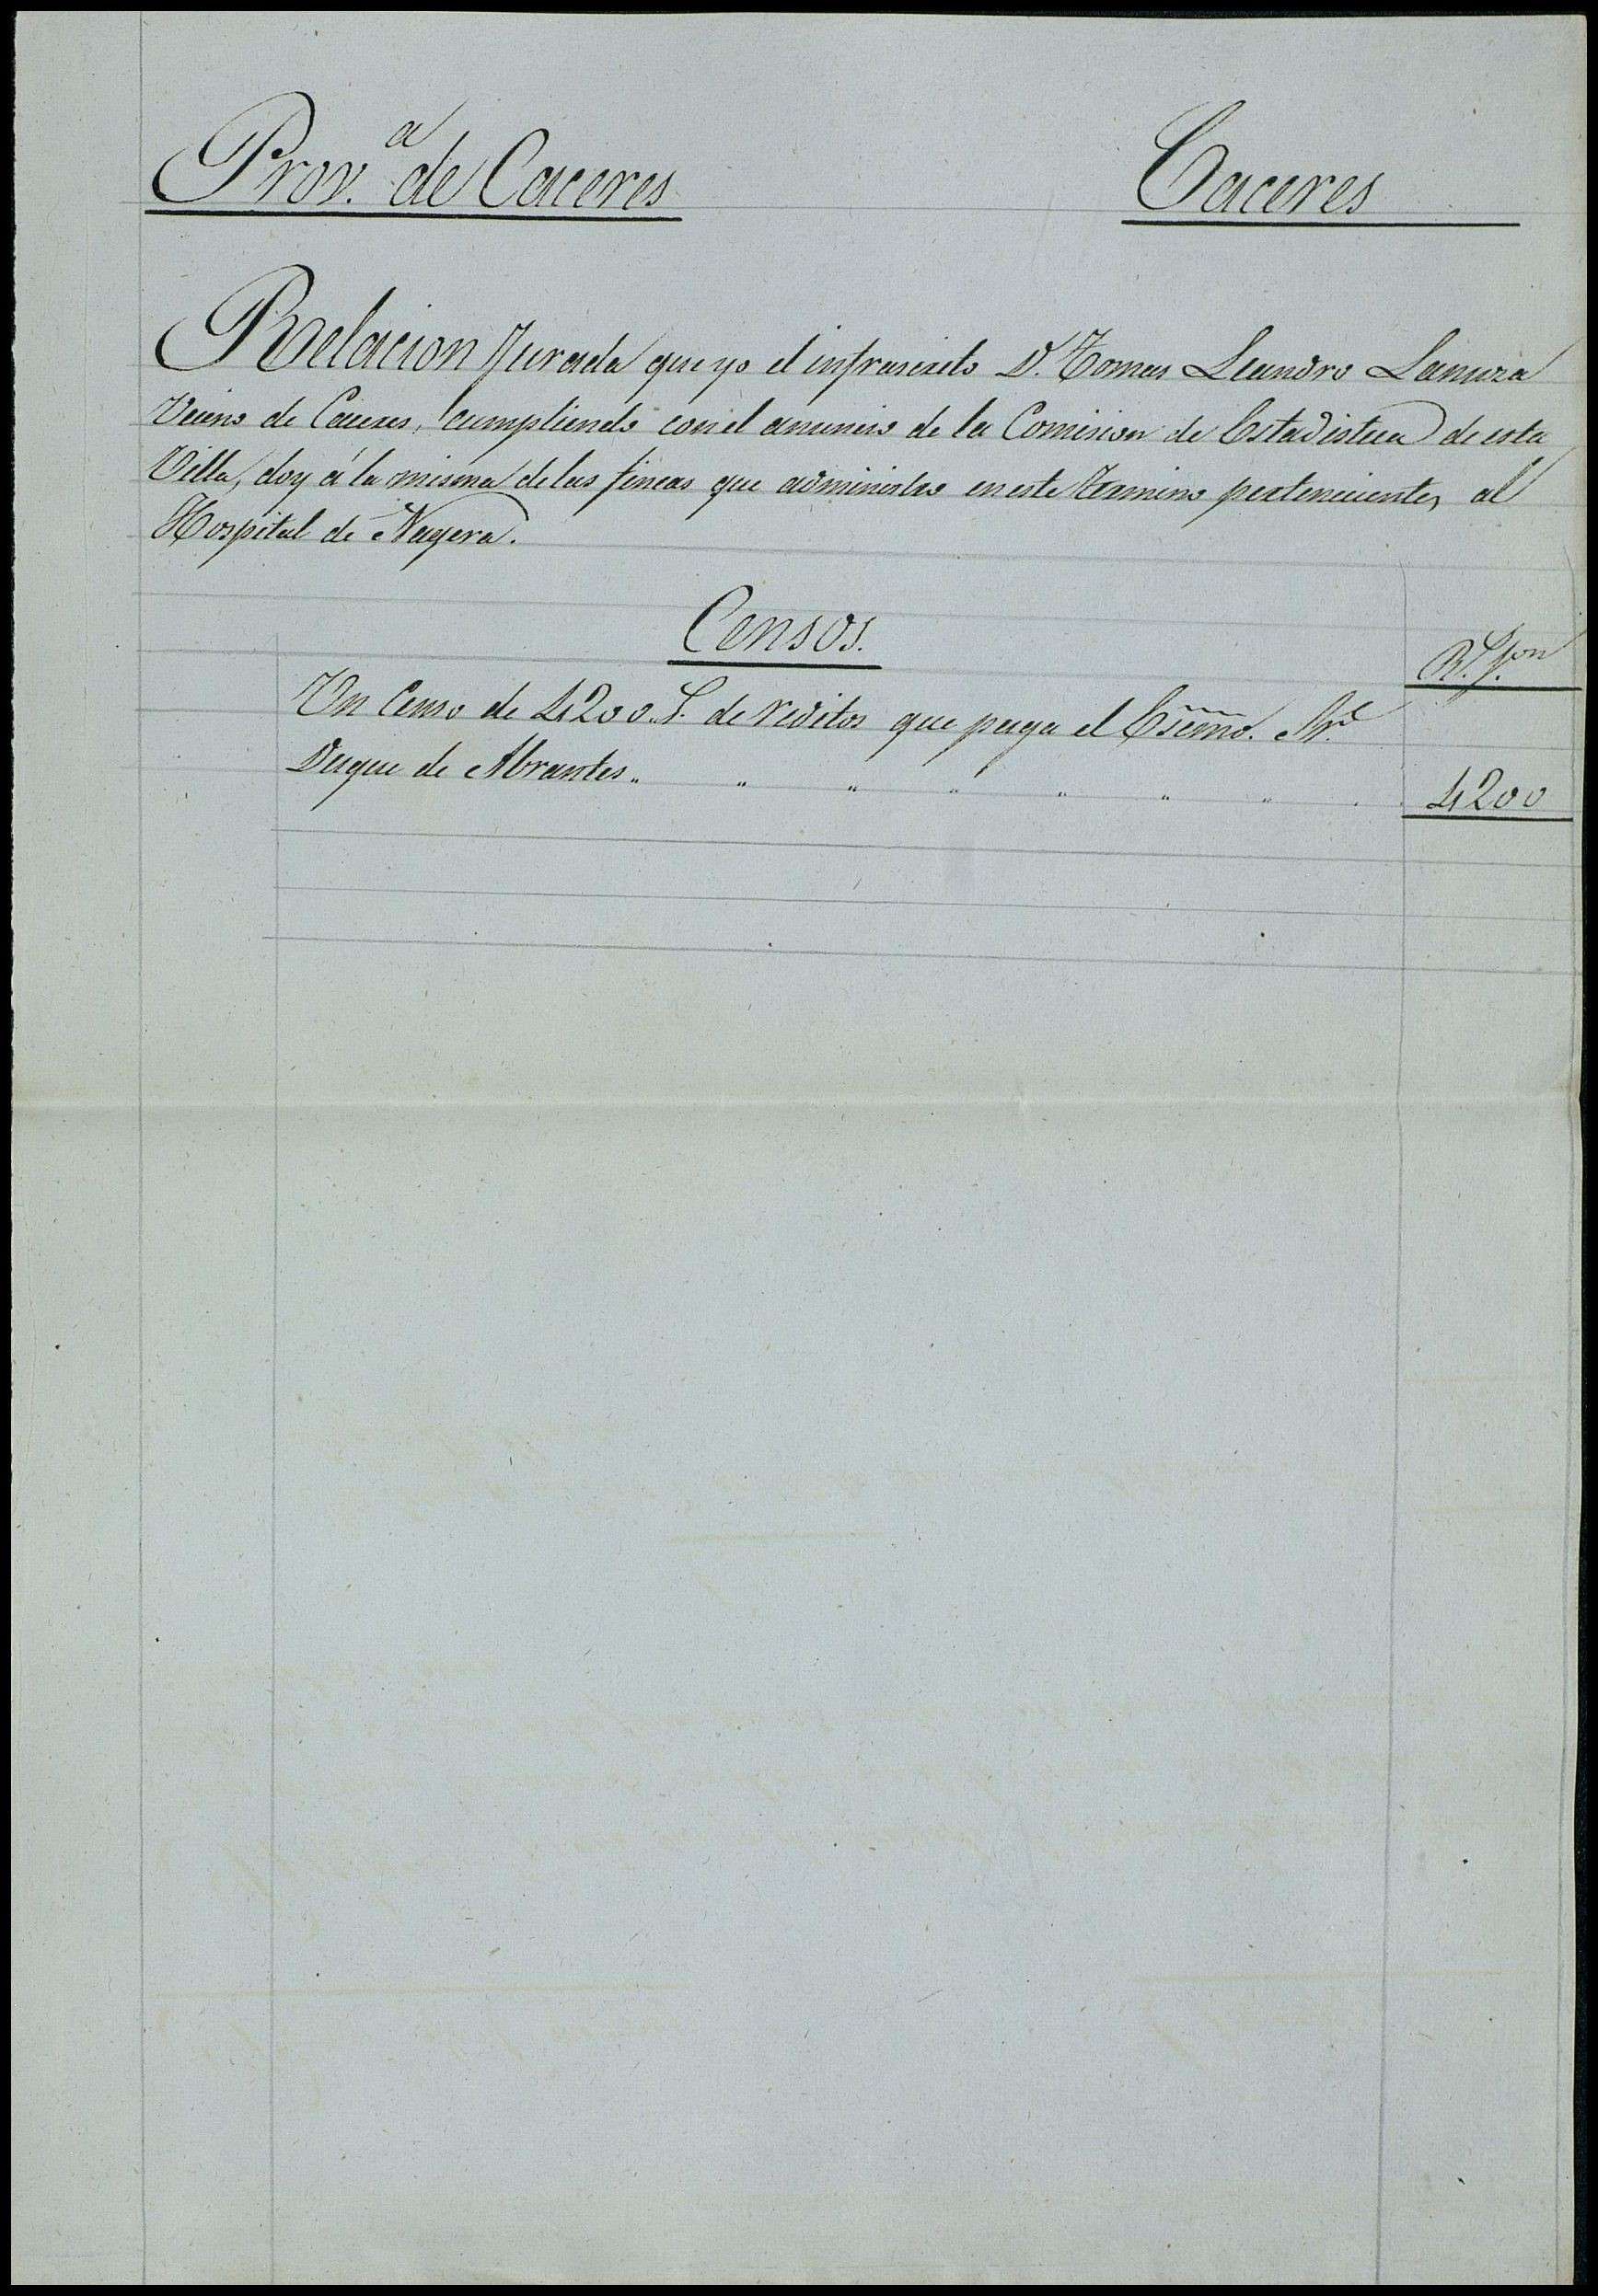 Prov.ª de Caceres
Caceres
Relacion Jurada que yo el infrascrito D. Tomas Leandro Lanuza
Vecino de Caceres, cumpliendo con el anuncio de la Comision de Estadistica de esta
Villa, doy á la misma de las fincas que administro en este termino pertenecientes al
Hospital de Nagera.
Censos.
Un Censo de 4200 S. de reditos que paga el Escmo. Sr.
Duque de Abrantes " " " " " " "
4200